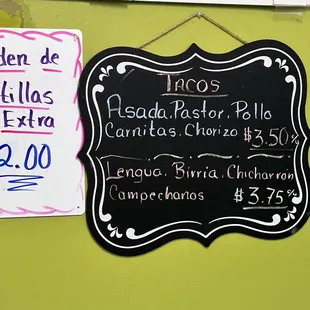 den de
tillas
Extra
2.00
TACOS
Asada. Pastor. Pollo
Carnitas. Chorizo $3.50 c/u
Lengua. Birria. Chicharron
Campechanos $3.75 c/u